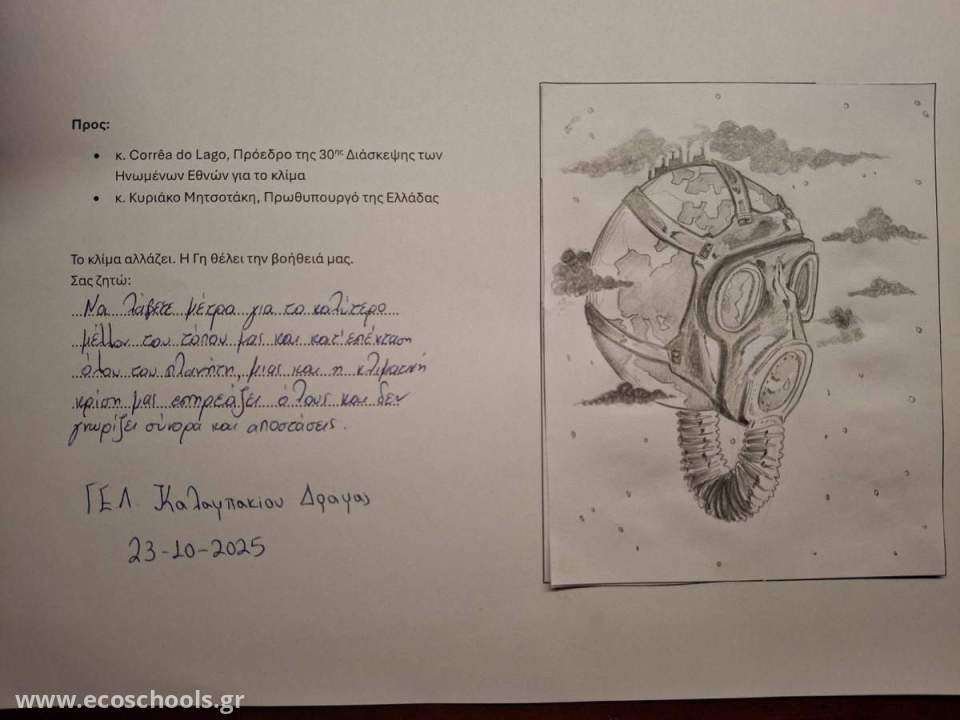 Προς:
• κ. Corrêa do Lago, Πρόεδρο της 30ης Διάσκεψης των
Ηνωμένων Εθνών για το κλίμα
• κ. Κυριάκο Μητσοτάκη, Πρωθυπουργό της Ελλάδας
Το κλίμα αλλάζει. Η Γη θέλει την βοήθειά μας.
Σας ζητώ:
Να λάβετε μέτρα για το καλύτερο
μέλλον του τόπου μας και κατ'επέκταση
όλου του πλανήτη, μιας και η κλιματική
κρίση μας επηρεάζει όλους και δεν
γνωρίζει σύνορα και αποστάσεις.
ΓΕΛ Καλαμπακίου Δράμας
23-10-2025
www.ecoschools.gr